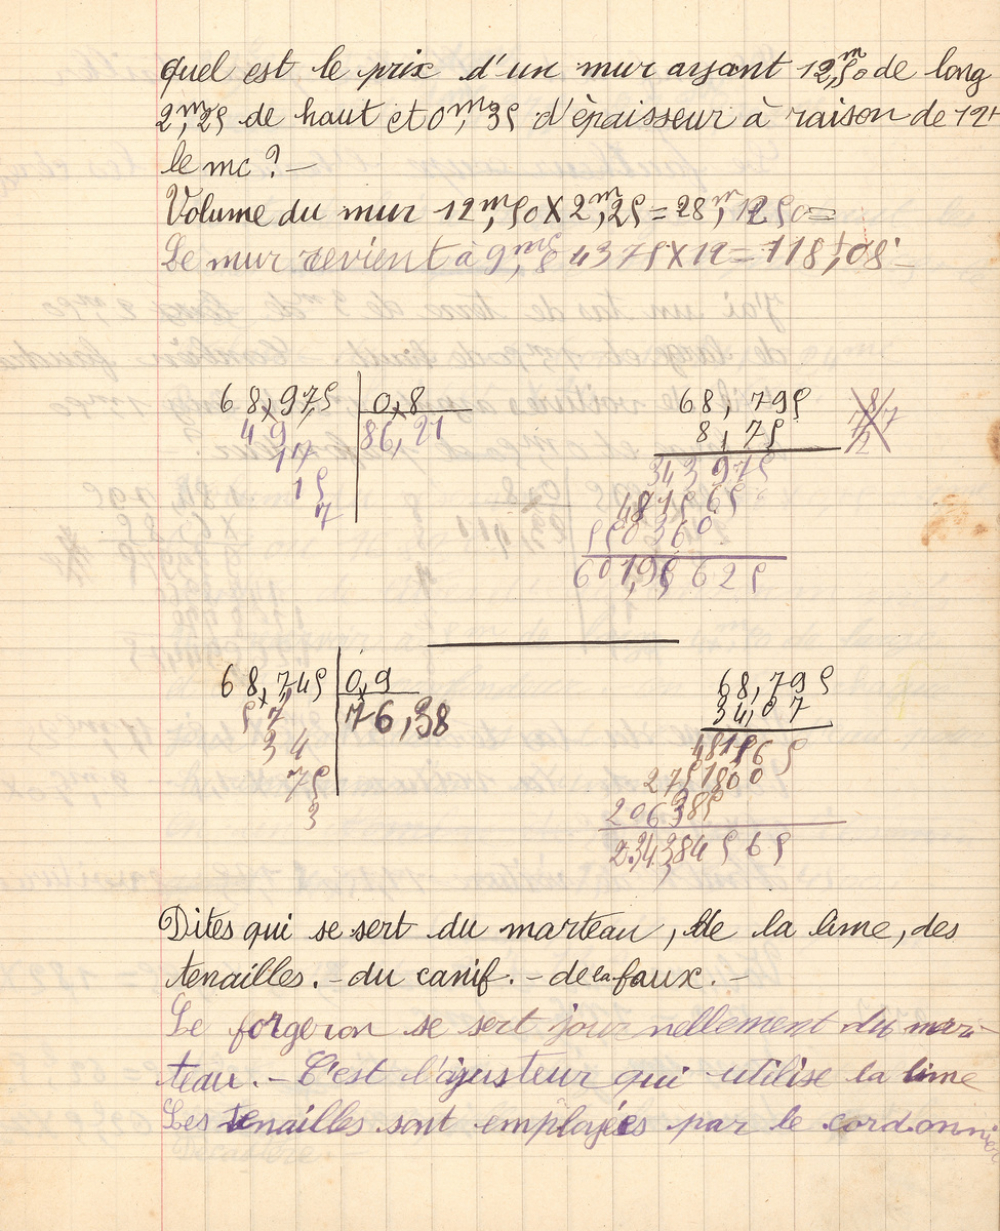 Quel est le prix d'un mur ayant 12m,50 de long
2m,25 de haut et 0m,35 d'èpaisseur à raison de 12f
le mc ? —
Volume du mur 12m,50 X 2m,25 = 28m,1250 =
Le mur revient à 9mc,84375 X 12 = 118f,08
68,975 | 0,8
49 | 86,21
17
15
7
68,795
8,75
343975
481565
550360
601,95625
8
7
2
68,745 | 0,9
57 | 76,38
34
75
3
68,795
34,07
481565
2751800
206385
234384565
Dites qui se sert du marteau, de la lime, des
tenailles. - du canif. - de la faux. -
Le forgeron se sert journellement du mar-
teau. - C'est l'ajusteur qui utilise la lime
Les tenailles sont employées par le cordonnier